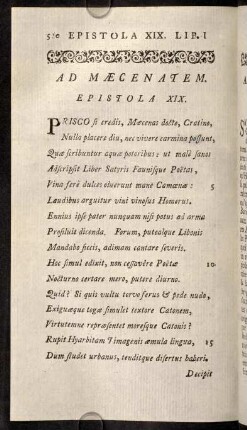 520 EPISTOLA XIX. LIB. I
AD MÆCENATEM.
EPISTOLA XIX.
PRISCO si credis, Mæcenas docte, Cratino,
Nulla placere diu, nec vivere carmina possunt,
Quæ scribuntur aquæ potoribus: ut male sanos
Adscripsit Liber Satyris Faunisque Poëtas,
Vina ferè dulces oluerunt mane Camœnæ: 5
Laudibus arguitur vini vinosus Homerus.
Ennius ipse pater nunquam nisi potus ad arma
Prosiluit dicenda. Forum, putealque Libonis
Mandabo siccis, adimam cantare severis.
Hoc simul edixit, non cessavêre Poëtæ 10
Nocturno certare mero, putere diurno.
Quid? Si quis vultu torvo ferus & pede nudo,
Exiguæque togæ simulet textore Catonem,
Virtutemne repræsentet moresque Catonis?
Rupit Hyarbitam Timagenis æmula lingua, 15
Dum studet urbanus, tenditque disertus haberi.
Decipit